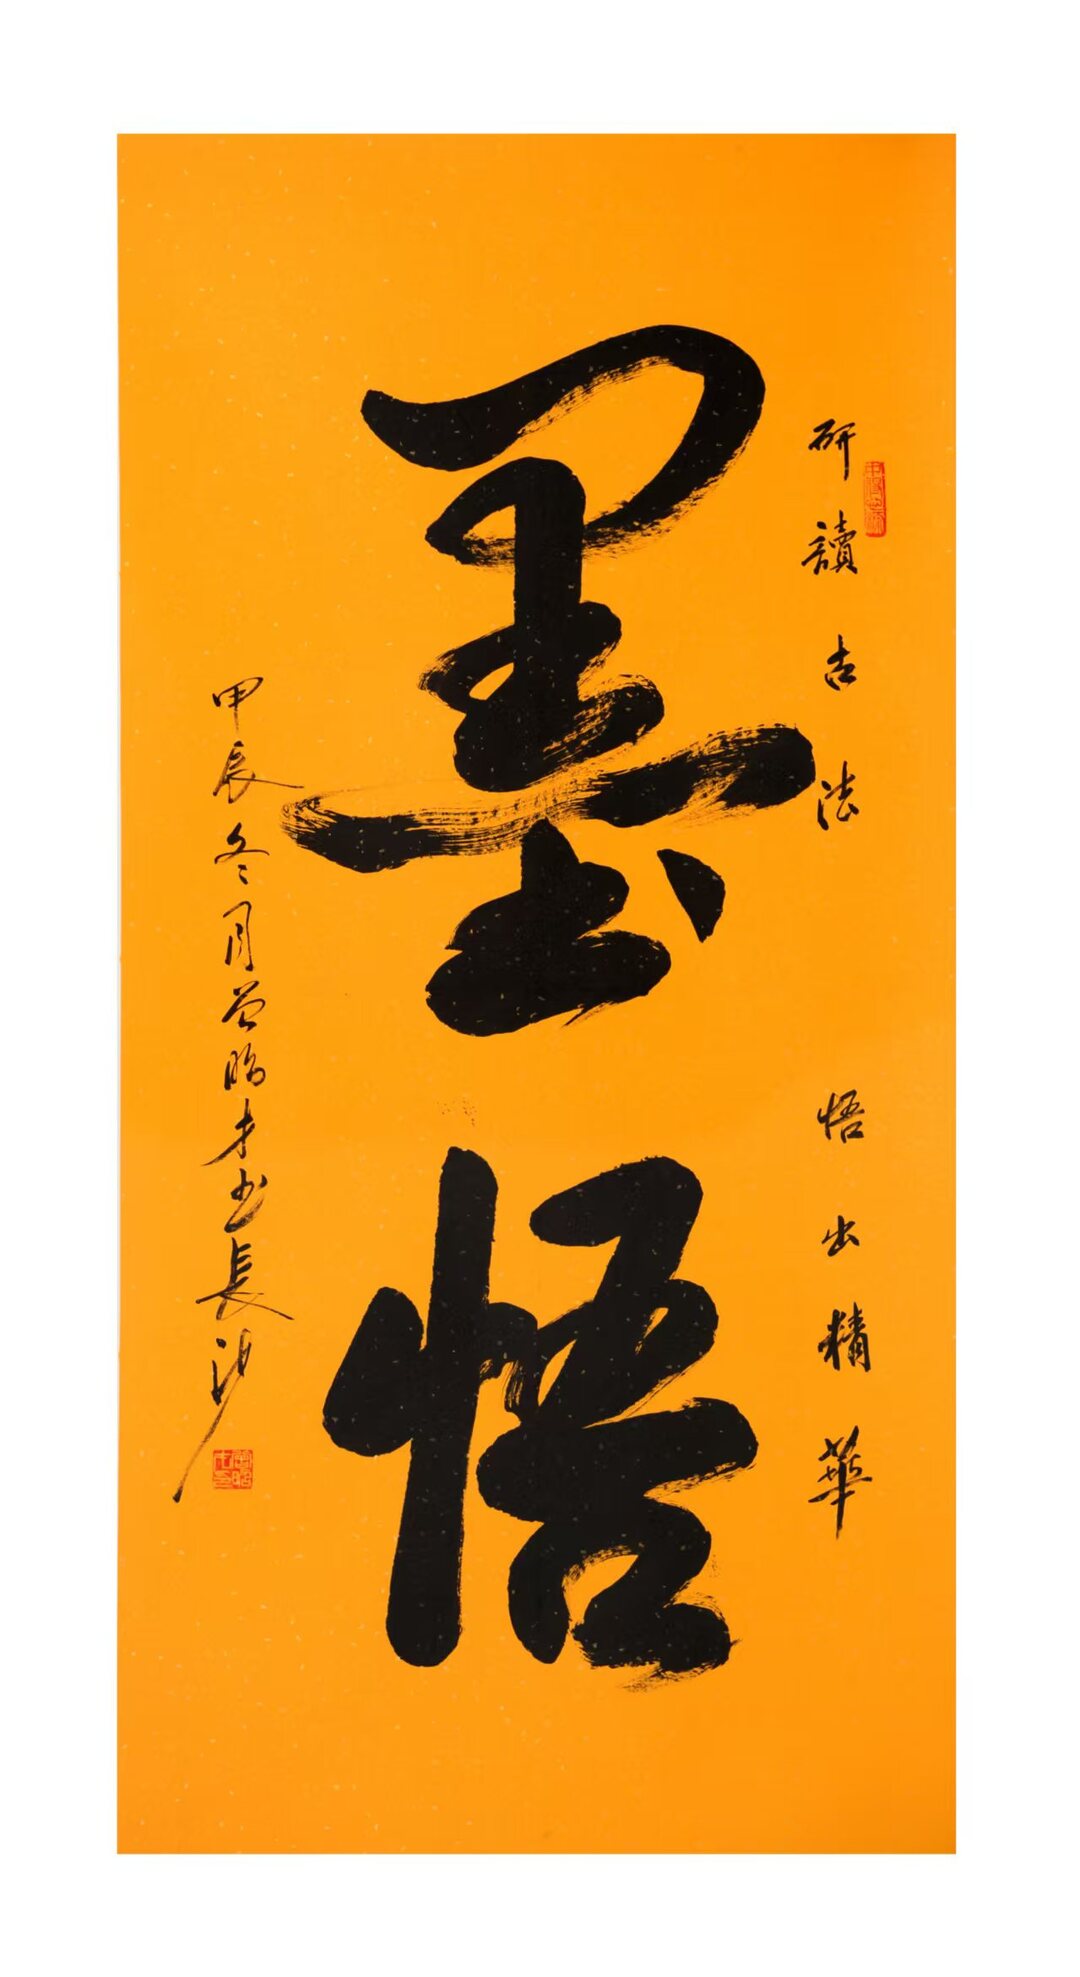 研讀古法 悟出精華
墨悟
甲辰冬月曾昭才书長沙